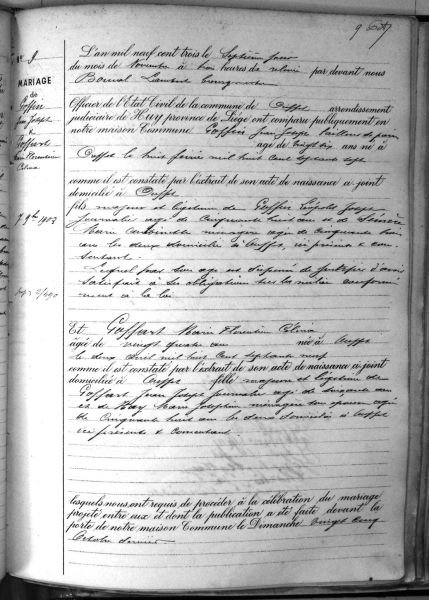 N° 8
MARIAGE
de
Goffin
Jean Joseph
&
Goffart
Marie Florentine
Célina
7 9bre 1903
L'an mil neuf cent trois le Septième jour
du mois de Novembre à trois heures de relevée par devant nous
Bourgmestre
Officier de l'Etat Civil de la commune de Ouffet arrondissement
judiciaire de Huy province de Liége ont comparu publiquement en
notre maison Commune Goffin Jean Joseph
agé de vingt six ans né à
Ouffet le huit février mil huit cent septante sept
comme il est constaté par l'extrait de son acte de naissance ci-joint
domicilié à Ouffet
fils majeur et légitime de Goffin Joseph
journalier agé de cinquante huit ans et de
Marie ménagère agée de cinquante trois
ans les deux domiciliés à Ouffet, ici présents & con-
sentant
Lequel par son age est dispensé de justifier d'avoir
satisfait à ses obligations sur la milice conformé-
ment à la loi
Et Goffart Marie Florentine Célina
agée de vingt quatre ans née à Ouffet
le deux avril mil huit cent septante neuf
comme il est constaté par l'extrait de son acte de naissance ci-joint
domiciliée à Ouffet fille majeure et légitime de
Goffart Jean Joseph journalier agé de soixante ans
et de Marie Joséphine ménagère son épouse agée
de cinquante huit ans les deux domiciliés à Ouffet
ici présents & consentant
lesquels nous ont requis de procéder à la célébration du mariage
projeté entre eux et dont la publication a été faite devant la
porte de notre maison Commune le Dimanche vingt cinq
Octobre dernier